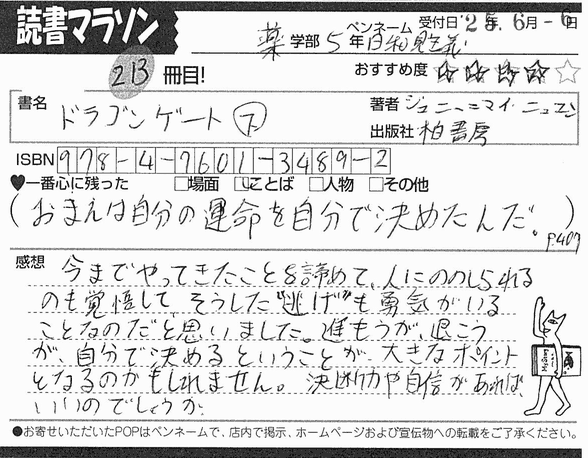 読書マラソン
ペンネーム 受付日'25年6月-6日
薬学部5年日和見主義
213冊目!
おすすめ度 ☆☆☆☆☆
書名 ドラゴンゲート下
著者 ジェニー=マイ・ニュエン
出版社 柏書房
ISBN 978-4-7601-3489-2
♥一番心に残った □場面 □ことば □人物 □その他
(おまえは自分の運命を自分で決めたんだ。)
p.407
感想 今までやってきたことを諦めて、人にののしられる
のも覚悟して、そうした"逃げ"も勇気がいる
ことなのだと思いました。進もうが、退こう
が、自分で決めるということが、大きなポイント
となるのかもしれません。決断力や自信があれば、
いいのでしょうか。
●お寄せいただいたPOPはペンネームで、店内で掲示、ホームページおよび宣伝物への転載をご了承ください。